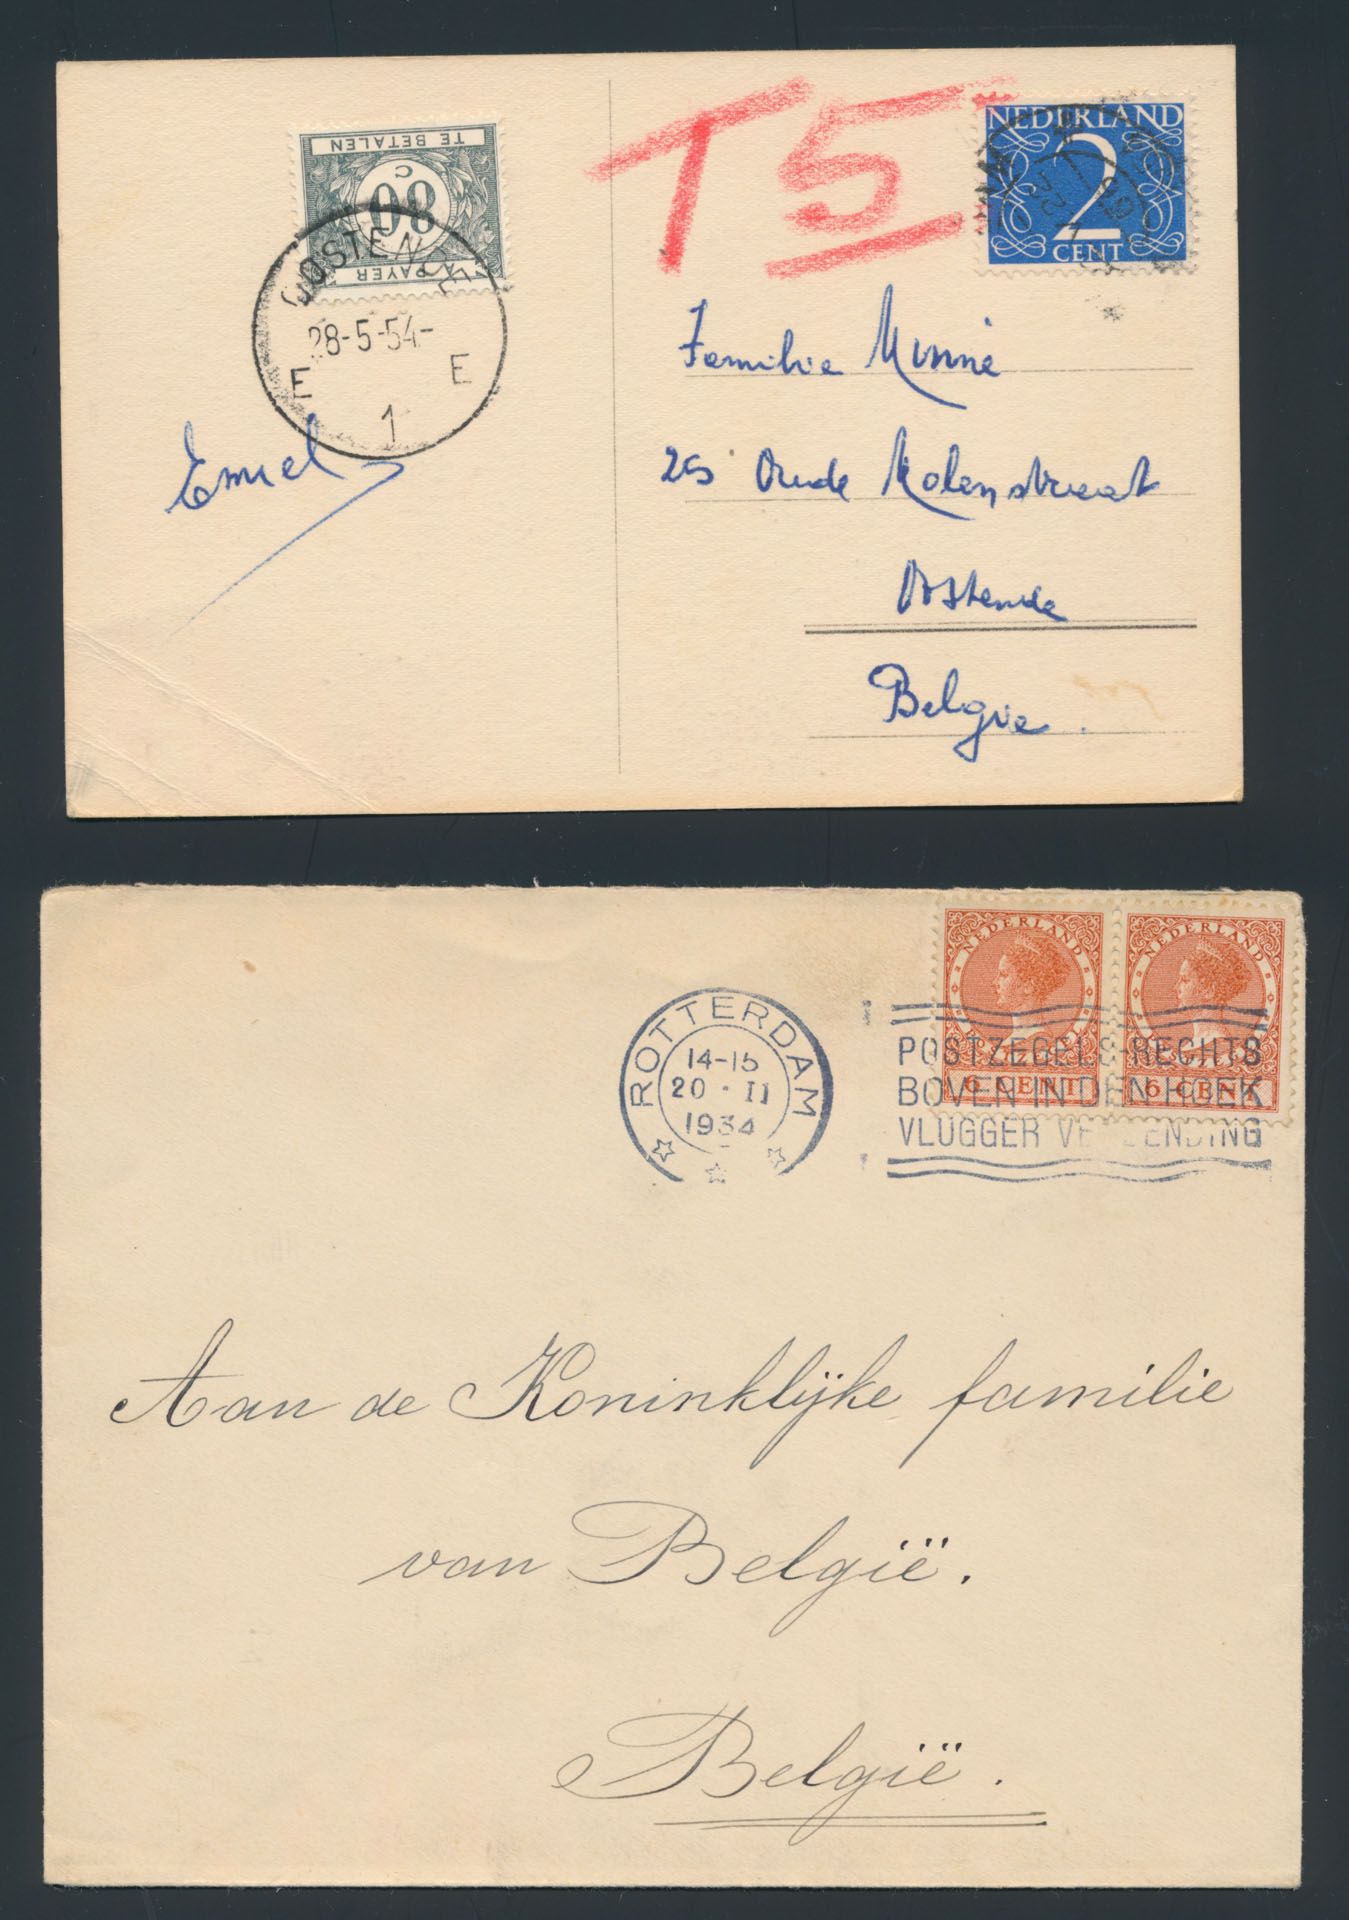 TE BETALEN
80
C
A PAYER
OOSTENDE
28-5-54-
E E
1
Emiel
T 5
NEDERLAND
2
CENT
Familie Minne
25 Oude Molenstraat
Oostende
Belgie.
NEDERLAND NEDERLAND
6 CENT 6 CENT
ROTTERDAM
14-15
20 · II
1934
POSTZEGELS-RECHTS
BOVEN IN DEN HOEK
VLUGGER VERZENDING
Aan de Koninklijke familie
van België.
België.